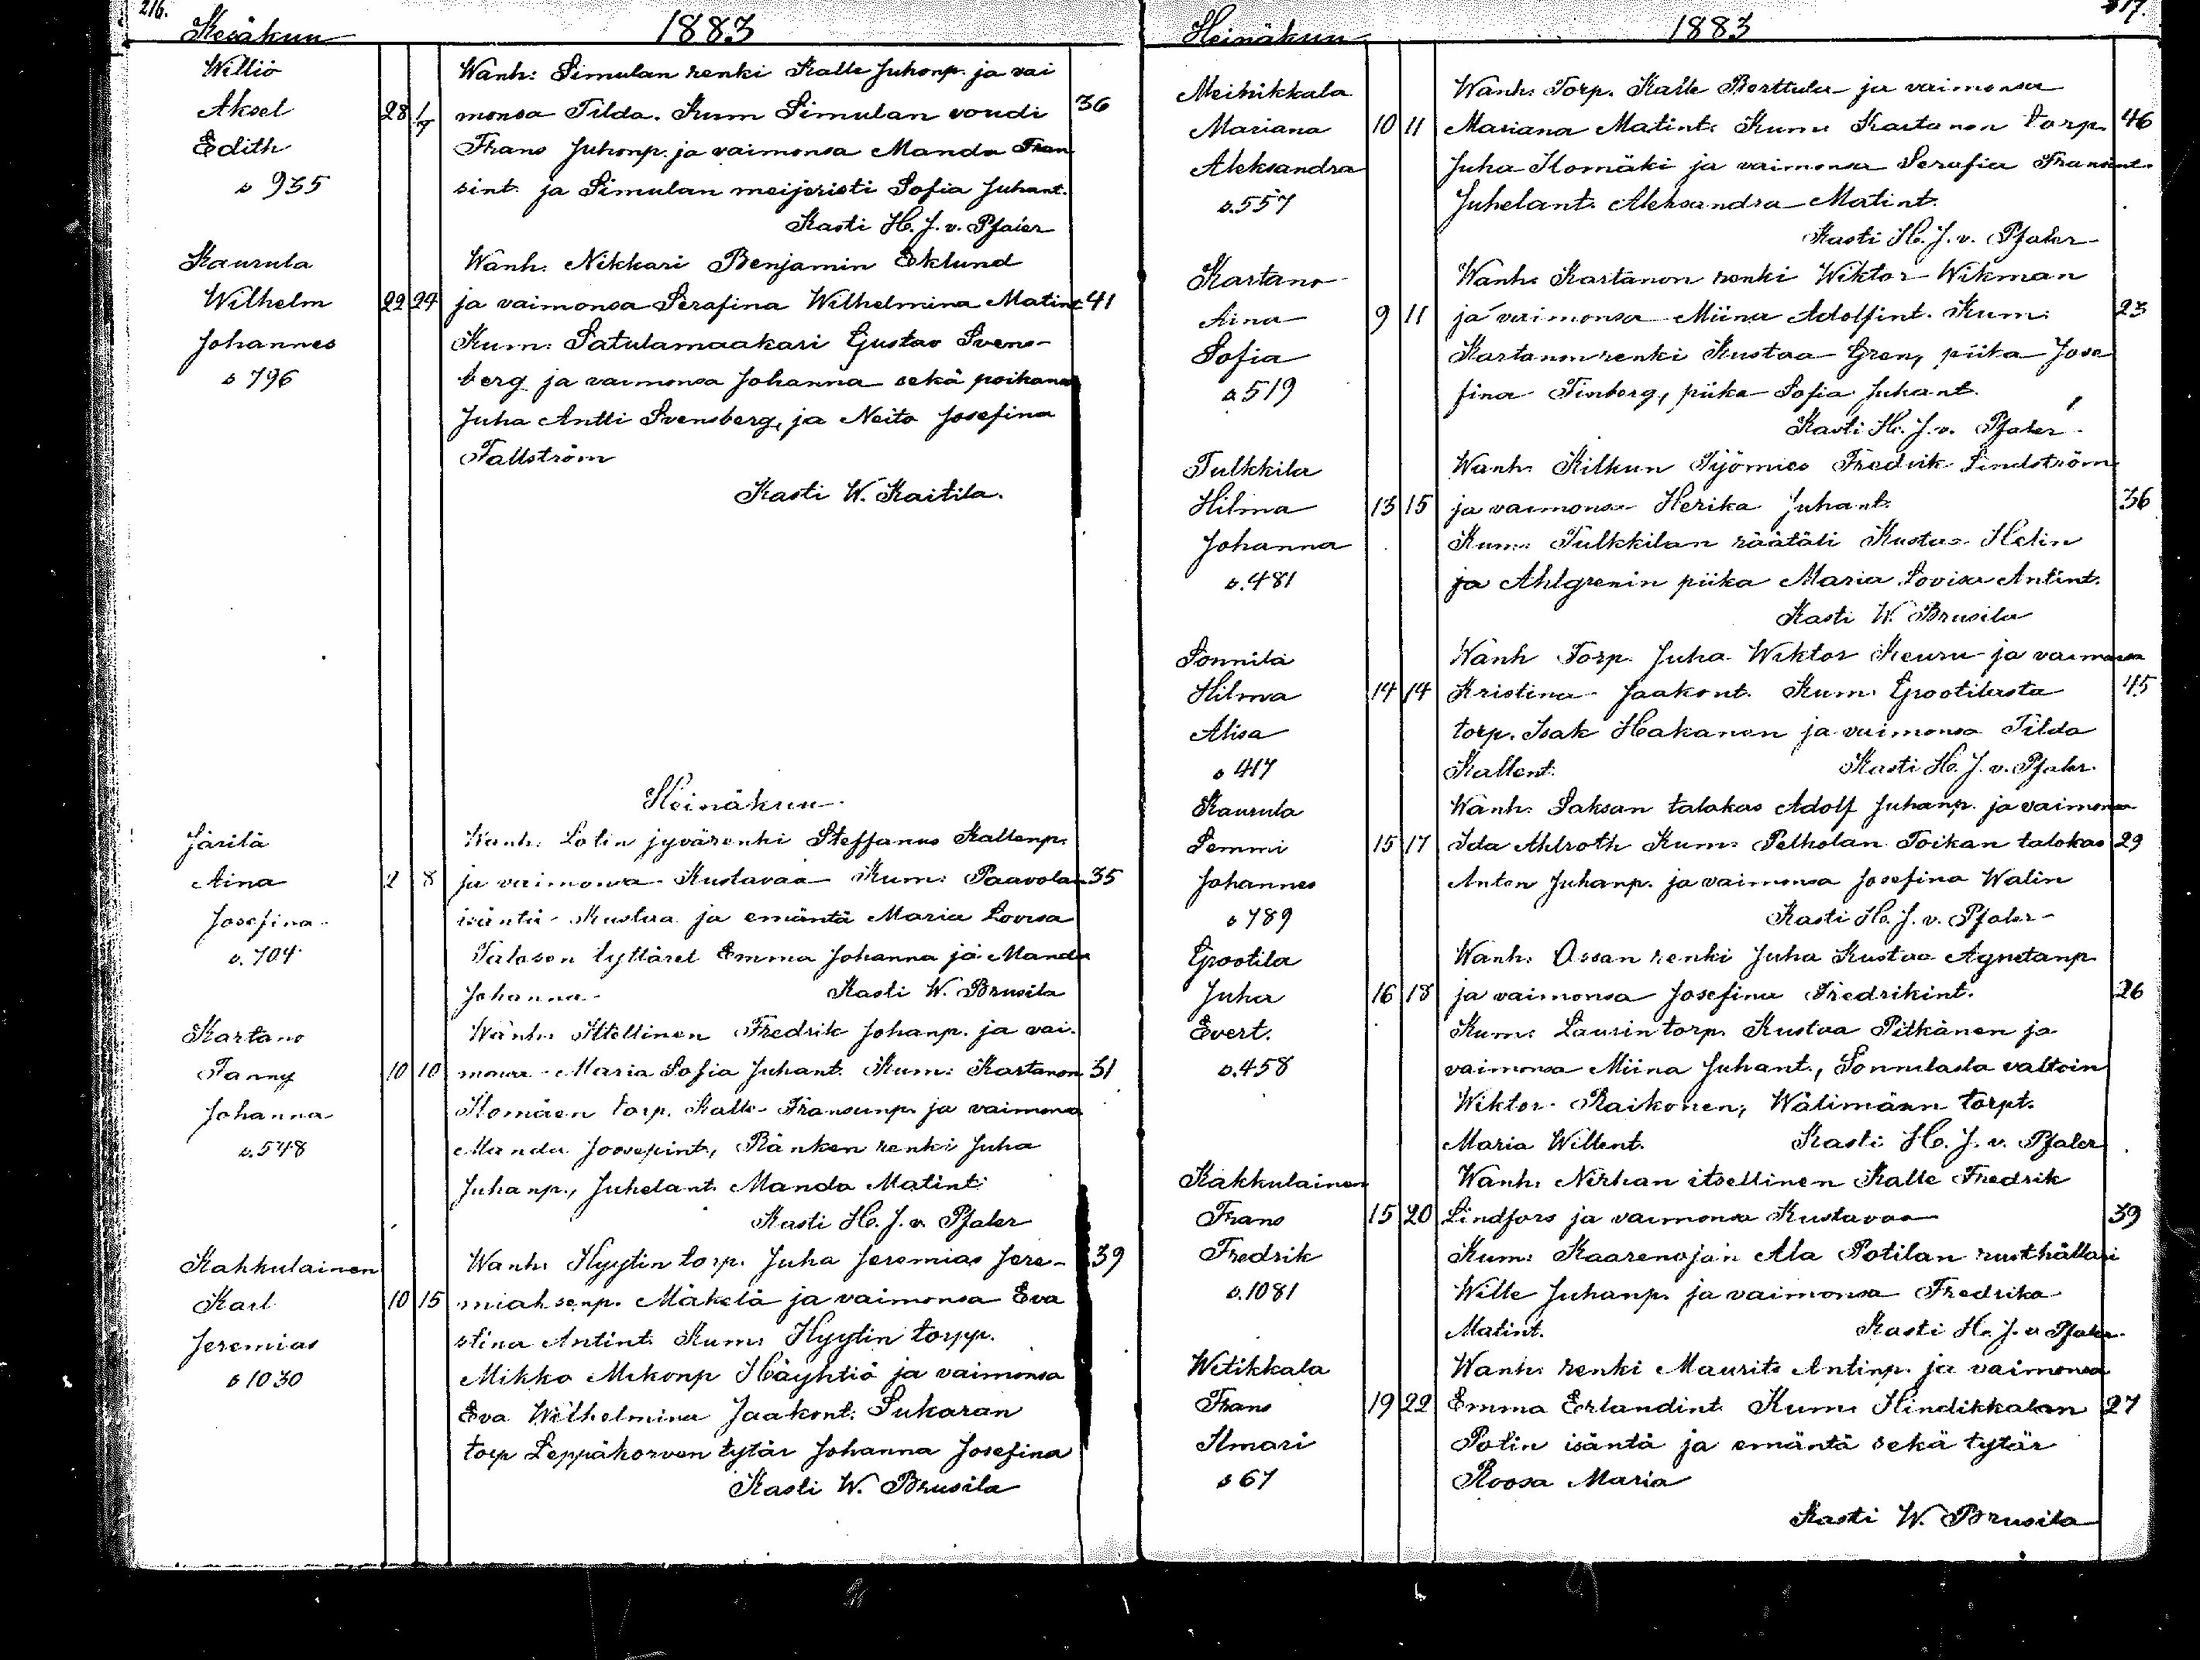 216.
Kesäkuu 1883
Williö Wanh: Simulan renki Kalle Juhonp. ja vai
Aksel 28 1/7 monsa Tilda. Kum Simulan voudi 36
Edith Frans Juhonp. ja vaimonsa Manda Fran
s 935 sint. ja Simulan meijeristi Sofia Juhant.
Kasti H. J. v. Pfaler
Kaurula Wanh: Nikkari Benjamin Eklund
Wilhelm 22 24 ja vaimonsa Serafina Wilhelmina Matint 41
Johannes Kum: Satulamaakari Gustav Svens-
s 796 berg ja vaimonsa Johanna sekä poikansa
Juha Antti Svensberg, ja Neito Josefina
Fallström
Kasti W. Kaitila.
Heinäkuu
Järilä Wanh: Lotin jyvärenki Steffanus Kallenp.
Aina 2 8 ja vaimonsa Kustavaa Kum: Paavolan 35
Josefina isäntä Kustaa ja emäntä Maria Lovisa
s. 704 Talosen tyttäret Emma Johanna ja Manda
Johanna Kasti W. Brusila
Kartano Wanh: Ittellinen Fredrik Johanp. ja vai-
Fanny 10 10 monsa Maria Sofia Juhant. Kum: Kartanon 31
Johanna Ilomäen torp. Kalle Fransunp. ja vaimonsa
s. 548 Manda Joosepint, Ränken renki Juha
Juhanp., Juhelant. Manda Matint:
Kasti H. J. v. Pfaler
Kakkulainen Wanh: Hyytin torp. Juha Jeremias Jere- 39
Karl 10 15 miahsenp. Mäkelä ja vaimonsa Eva
Jeremias stina Antint. Kum: Hyytin torpp.
s 1030 Mikko Mikonp Häyhtiö ja vaimonsa
Eva Wilhelmina Jaakont: Sukaran
torp Leppäkorven tytär Johanna Josefina
Kasti W. Brusila
317.
Heinäkuu 1883
Meihikkala Wanh: Torp. Kalle Perttula ja vaimonsa
Mariana 10 11 Mariana Matint: Kum: Kartanon torp. 46
Aleksandra Juha Ilomäki ja vaimonsa Serafia Fransint.
s. 557 Juhelant. Aleksandra Matint.
Kasti H. J. v. Pfaler
Kartano Wanh: Kartanon renki Wiktor Wikman
Aina 9 11 ja vaimonsa Miina Adolfint. Kum: 23
Sofia Kartanon renki Kustaa Gren, piika Jose
s 519 fina Finberg, piika Sofia Juhant.
Kasti H. J. v. Pfaler
Tulkkila Wanh: Kilkun Työmies Fredrik Lindström
Hilma 13 15 ja vaimonsa Herika Juhant. 36
Johanna Kum: Tulkkilan räätäli Kustaa Helin
s. 481 ja Ahlgrenin piika Maria Lovisa Antint.
Kasti W. Brusila
Sonnila Wanh Torp. Juha Wiktor Keuru ja vaimonsa
Hilma 14 14 Kristina Jaakont. Kum. Gpootilasta 45
Alisa torp. Isak Hakanen ja vaimonsa Tilda
s 417 Kallent. Kasti H. J. v. Pfaler.
Kaurula Wanh: Saksan talokas Adolf Juhanp. ja vaimonsa
Semmi 15 17 Ida Ahlroth Kum: Pelholan Toikan talokas 29
Johannes Anton Juhanp. ja vaimonsa Josefina Walin
s 789 Kasti H. J. v. Pfaler
Gpootila Wanh: Ossan renki Juha Kustaa Agnetanp
Juha 16 18 ja vaimonsa Josefina Fredrikint. 26
Evert. Kum: Laurin torp. Kustaa Pitkänen ja
s. 458 vaimonsa Miina Juhant., Sonnilasta valtoin
Wiktor Raikonen, Wälimään torpt.
Maria Willent. Kasti H. J. v. Pfaler
Kakkulainen Wanh: Nirhan itsellinen Kalle Fredrik
Frans 15 20 Lindfors ja vaimonsa Kustavaa 39
Fredrik Kum: Kaarenojan Ala Potilan rusthållari
s. 1081 Wille Juhanp. ja vaimonsa Fredrika
Matint. Kasti H. J. v Pfaler.
Witikkala Wanh: renki Maurits Antinp. ja vaimonsa
Frans 19 22 Emma Erlandint. Kum: Hindikkalan 27
Ilmari Potin isäntä ja emäntä sekä tytär
s 67 Roosa Maria
Kasti W. Brusila